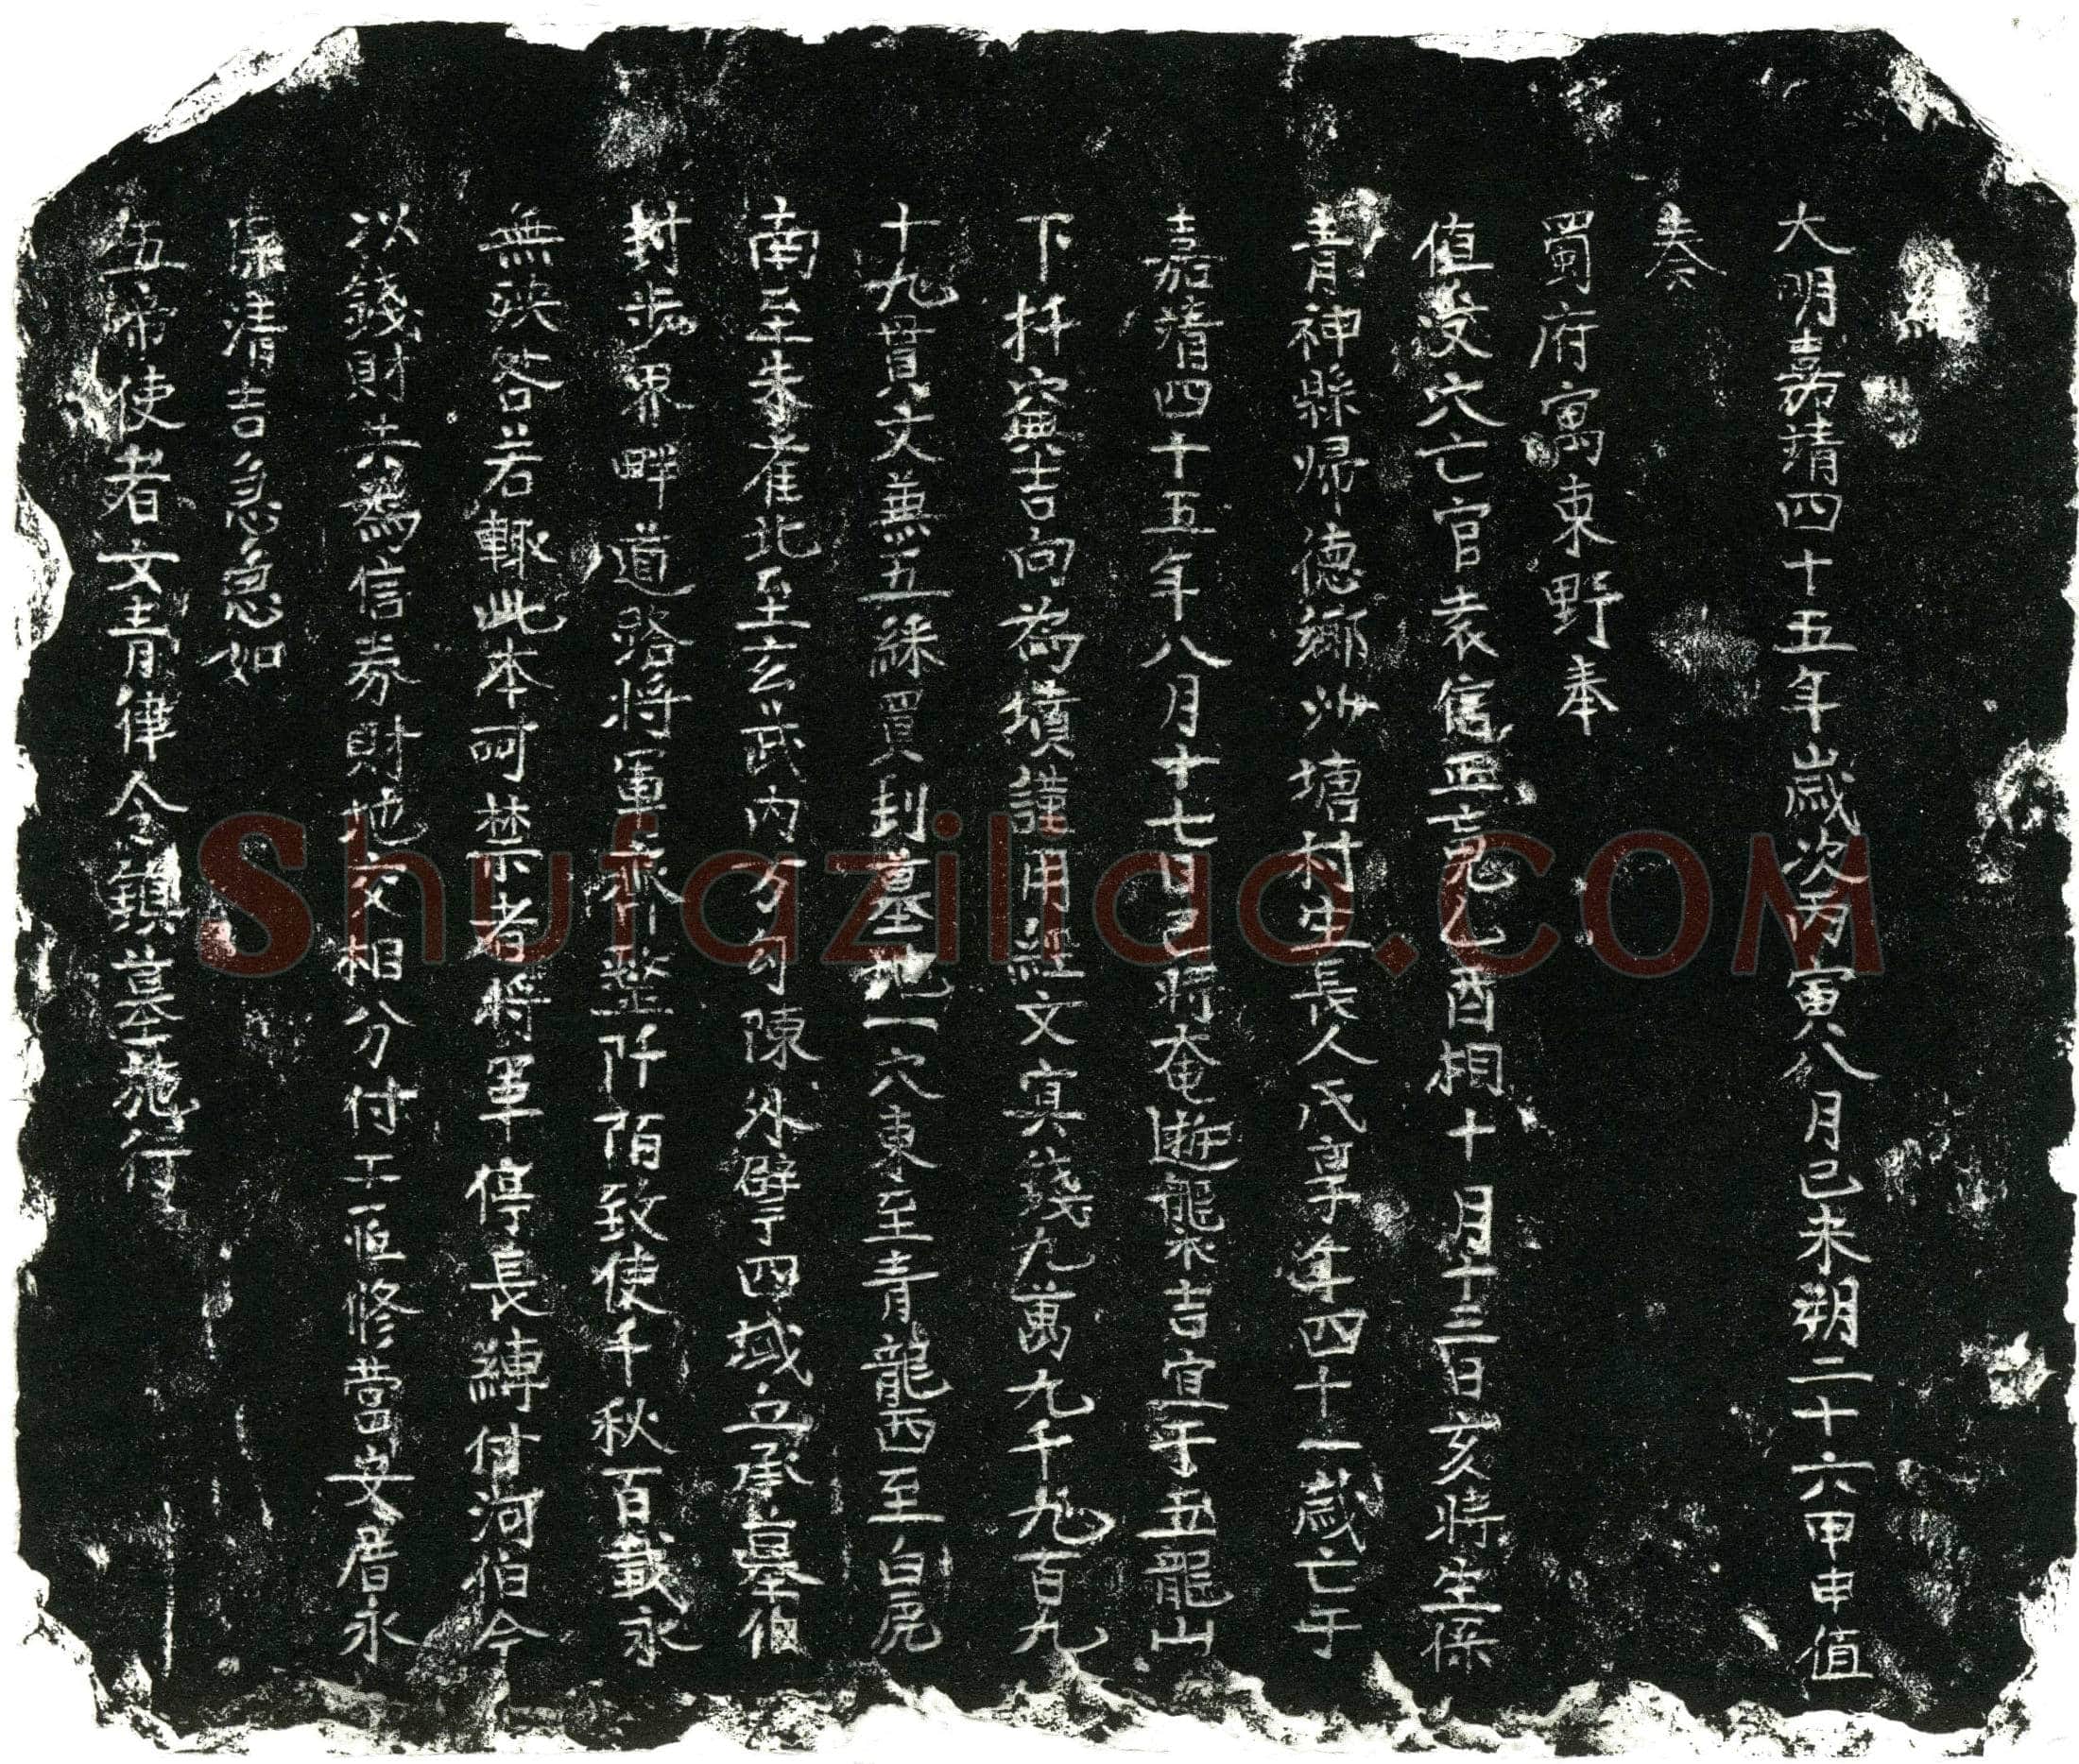 大明嘉靖四十五年歲次丙寅八月己未朔二十六甲申值
奏
蜀府寓東野奉
值没穴亡官袁信正亡兄乙酉相十月十三日亥時生係
青神縣歸德鄉沙塘村生長人氏享年四十一歲亡于
嘉靖四十五年八月十七日已将奄逝龍吉宜于五龍山
下扦穴吉向為墳謹用經文冥錢九萬九千九百九
十九貫文兼五綵買到墓地一穴東至青龍西至白虎
南至朱雀北至玄武内方勾陳外擘四域立承墓伯
封步界畔道路将軍齊整阡陌致使千秋百載永
無殃咎若輒此本呵禁者将軍停長縛付河伯今
以錢財共為信券財地交相分付工匠修營安厝永
保清吉急急如
五帝使者女青律令鎮墓施行
Shufaziliao.COM